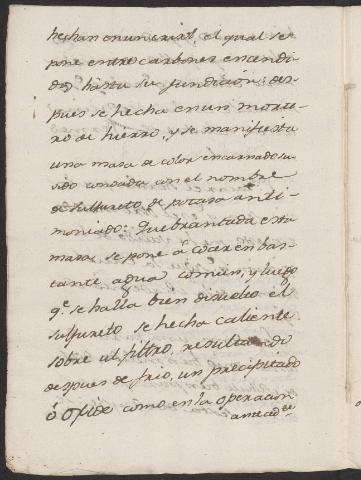 hechan en un crisol, el qual se
pone entre carbones encendi-
dos hasta su fundicion: des-
pues se hecha en un morte-
ro de hierro, y se manifiesta
una masa de color encarnado
sido conocida con el nombre
de sulfureto de potasa anti-
moniado: Quebrantada esta
masa, se pone á cocer en bas-
tante agua comun, y luego
q.e se halla bien disuelto el
sulfureto se hecha caliente
sobre el filtro, resultando
despues de frio, un precipitado
ó oxide como en la operacion
anteced.te